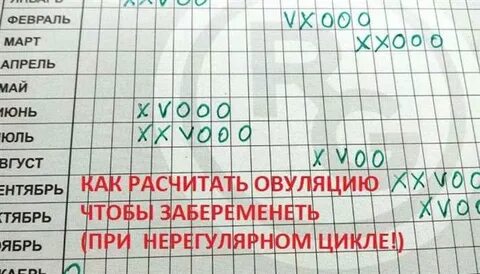 ЯНВАРЬ XXVOO
ФЕВРАЛЬ VXOOO
МАРТ XXOOO
АПРЕЛЬ
МАЙ
ИЮНЬ XVOOO
ИЮЛЬ XXVOOO
АВГУСТ XVOO
СЕНТЯБРЬ XXVOO
ОКТЯБРЬ XVO
НОЯБРЬ
ДЕКАБРЬ
КАК РАСЧИТАТЬ ОВУЛЯЦИЮ
ЧТОБЫ ЗАБЕРЕМЕНЕТЬ
(ПРИ НЕРЕГУЛЯРНОМ ЦИКЛЕ!)